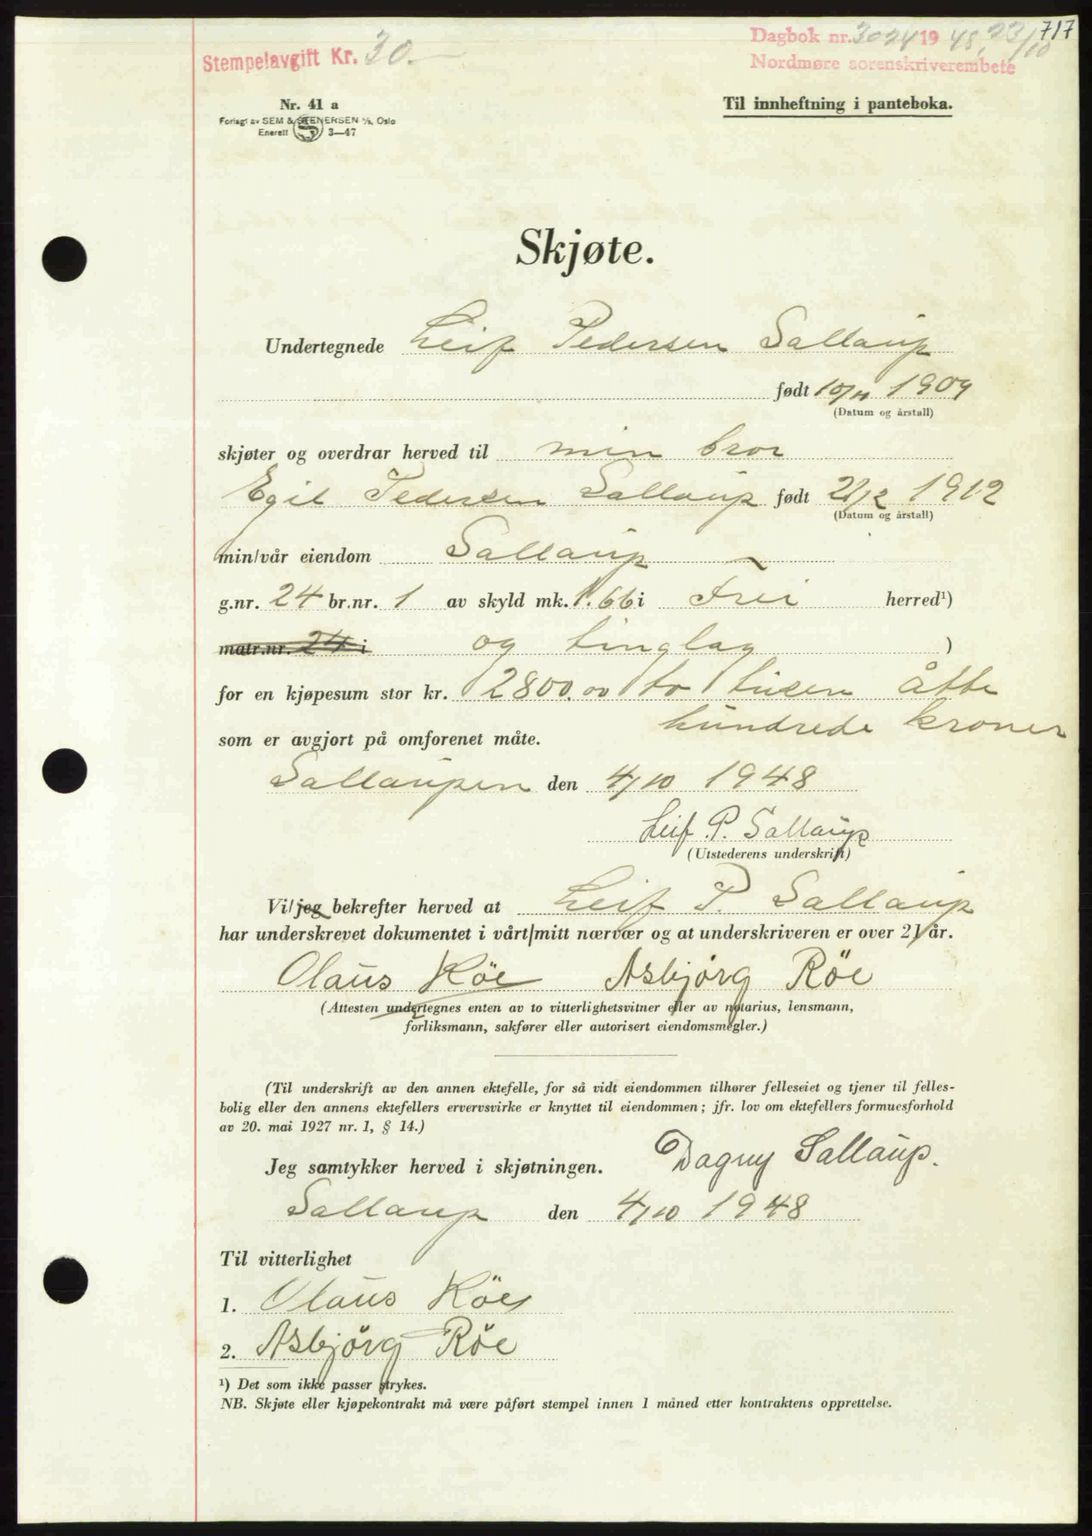 717
Stempelavgift Kr. 30.—
Dagbok nr. 3024 19 48, 23/10
Nordmøre sorenskriverembete
Nr. 41 a
Forlagt av SEM & STENERSEN A/S, Oslo
Enerett 3—47
Til innheftning i panteboka.
Skjøte.
Undertegnede Leif Pedersen Sallaup
født 10/11 1909
(Datum og årstall)
skjøter og overdrar herved til min bror
Egil Pedersen Sallaup født 21/12 1912
(Datum og årstall)
min/vår eiendom Sallaup
g.nr. 24 br.nr. 1 av skyld mk. 1.66 i Frei herred¹)
matr.nr. 24 i og tinglag )
for en kjøpesum stor kr. 2800.00 to tusen åtte
hundrede kroner
som er avgjort på omforenet måte.
Sallaupen den 4/10 1948
Leif P. Sallaup
(Utstederens underskrift)
Vi/jeg bekrefter herved at Leif P. Sallaup
har underskrevet dokumentet i vårt/mitt nærvær og at underskriveren er over 21 år.
Olaus Röe Asbjörg Röe
(Attesten undertegnes enten av to vitterlighetsvitner eller av notarius, lensmann,
forliksmann, sakfører eller autorisert eiendomsmegler.)
(Til underskrift av den annen ektefelle, for så vidt eiendommen tilhører felleseiet og tjener til felles-
bolig eller den annens ektefellers ervervsvirke er knyttet til eiendommen; jfr. lov om ektefellers formuesforhold
av 20. mai 1927 nr. 1, § 14.)
Jeg samtykker herved i skjøtningen. Dagny Sallaup.
Sallaup den 4/10 1948
Til vitterlighet
1. Olaus Röe
2. Asbjörg Röe
¹) Det som ikke passer strykes.
NB. Skjøte eller kjøpekontrakt må være påført stempel innen 1 måned etter kontraktens opprettelse.